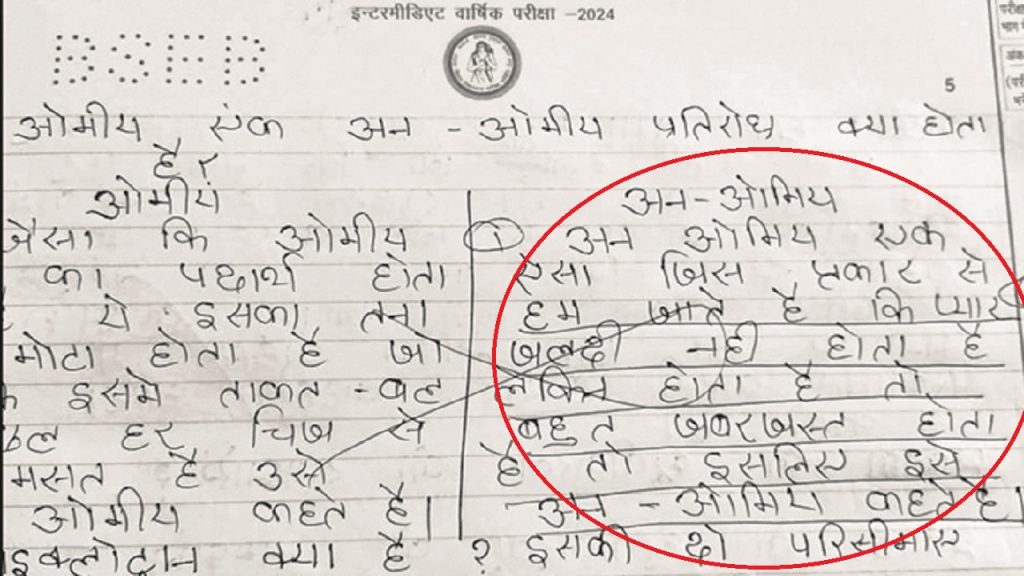 इन्टरमीडिएट वार्षिक परीक्षा -2024
BSEB
5
ओमीय एंक अन - ओमीय प्रतिरोध क्या होता
है ?
ओमीयं
जैसा कि ओमीय
का पदार्थ होता
ये इसका तना
मोटा होता है जो
इसमे ताकत - वल
हर चिज से
मसत है उसे
ओमीय कहते है।
इक्लोट्रान क्या है ?
अन-ओमिय
1 अन ओमिय एक
ऐसा जिस प्रकार से
हम जाते है कि प्यार
जलदी नही होता है
लेकिन होता है तो
बहुत जबरजस्त होता
है तो इसलिए इसे
अन - ओमिय कहते है।
इसकी दो परिसीमाए